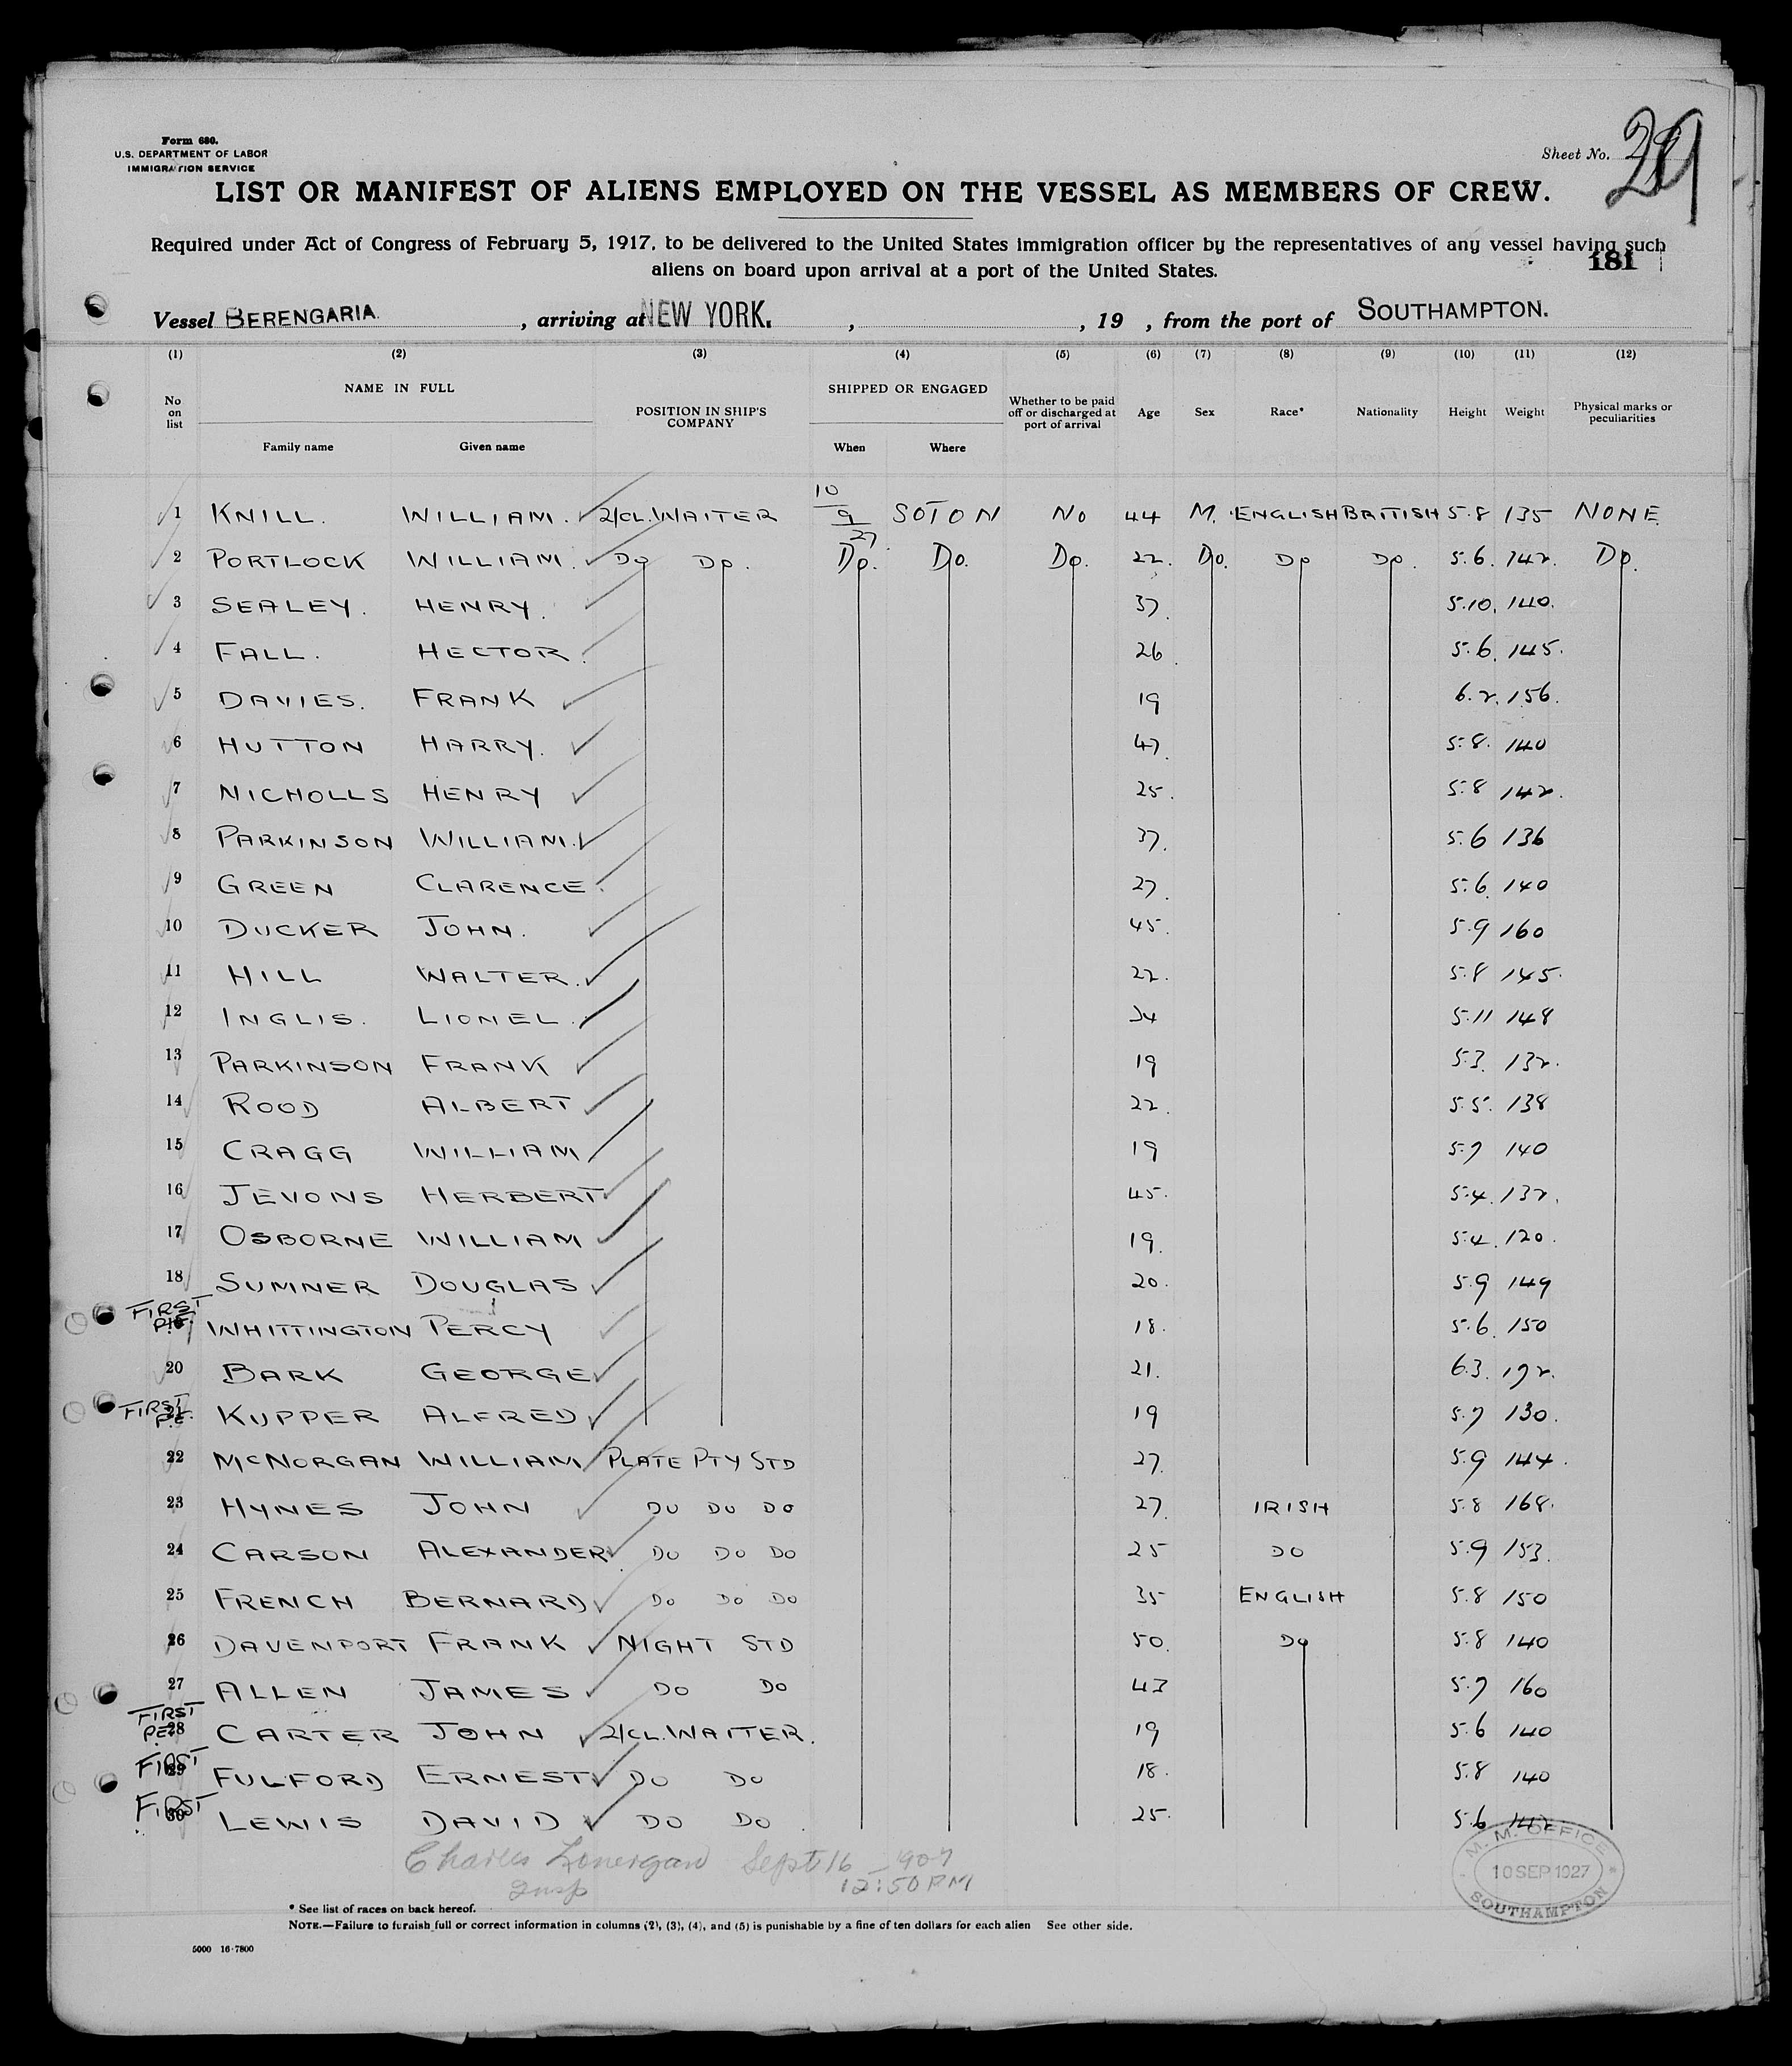 Form 680.
U.S. DEPARTMENT OF LABOR
IMMIGRATION SERVICE
Sheet No.
LIST OR MANIFEST OF ALIENS EMPLOYED ON THE VESSEL AS MEMBERS OF CREW.
Required under Act of Congress of February 5, 1917, to be delivered to the United States immigration officer by the representatives of any vessel having such
aliens on board upon arrival at a port of the United States.
181
Vessel BERENGARIA , arriving at NEW YORK. , , 19 , from the port of SOUTHAMPTON.
(1) (2) (3) (4) (5) (6) (7) (8) (9) (10) (11) (12)
No on list NAME IN FULL Family name Given name POSITION IN SHIP'S COMPANY SHIPPED OR ENGAGED When Where Whether to be paid off or discharged at port of arrival Age Sex Race* Nationality Height Weight Physical marks or peculiarities
1 KNILL. WILLIAM. 2/CL. WAITER 10/9/27 SOTON NO 44 M. ENGLISH BRITISH 5.8 135 NONE
2 PORTLOCK WILLIAM. DO DO. DO. DO. DO. 22. DO. DO DO. 5.6. 142. DO.
3 SEALEY. HENRY. 37. 5.10. 140.
4 FALL. HECTOR. 26. 5.6. 145.
5 DAVIES. FRANK 19 6.2. 156.
6 HUTTON HARRY. 47. 5.8. 140
7 NICHOLLS HENRY 25. 5.8 142.
8 PARKINSON WILLIAM. 37. 5.6 136
9 GREEN CLARENCE. 27. 5.6. 140
10 DUCKER JOHN. 45. 5.9 160
11 HILL WALTER. 22. 5.8 145.
12 INGLIS. LIONEL. 34 5.11 148
13 PARKINSON FRANK 19 5.3. 132.
14 ROOD ALBERT 22. 5.5. 138
15 CRAGG WILLIAM 19 5.7 140
16 JEVONS HERBERT 45. 5.4. 132.
17 OSBORNE WILLIAM 19. 5.4. 120.
18 SUMNER DOUGLAS 20. 5.9 149
FIRST WHITTINGTON PERCY 18. 5.6. 150
20 BARK GEORGE 21. 6.3. 192.
FIRST P.E. KUPPER ALFRED 19 5.7 130.
22 McNORGAN WILLIAM PLATE PTY STD 27. 5.9 144.
23 HYNES JOHN DO DO DO 27. IRISH 5.8 168.
24 CARSON ALEXANDER DO DO DO 25 DO 5.9 153.
25 FRENCH BERNARD DO DO DO 35 ENGLISH 5.8 150
26 DAVENPORT FRANK NIGHT STD 50. DO 5.8 140
27 ALLEN JAMES DO DO 43 5.7 160
FIRST P.E. 28 CARTER JOHN 2/CL. WAITER. 19 5.6 140
FIRST 29 FULFORD ERNEST DO DO 18. 5.8 140
FIRST 30 LEWIS DAVID DO DO. 25. 5.6 142
Charles Lonergan Sept 16
Insp 12:50 PM
M. M. OFFICE
10 SEP 1927
SOUTHAMPTON
* See list of races on back hereof.
NOTE.—Failure to furnish full or correct information in columns (2), (3), (4), and (5) is punishable by a fine of ten dollars for each alien See other side.
5000 16-7800